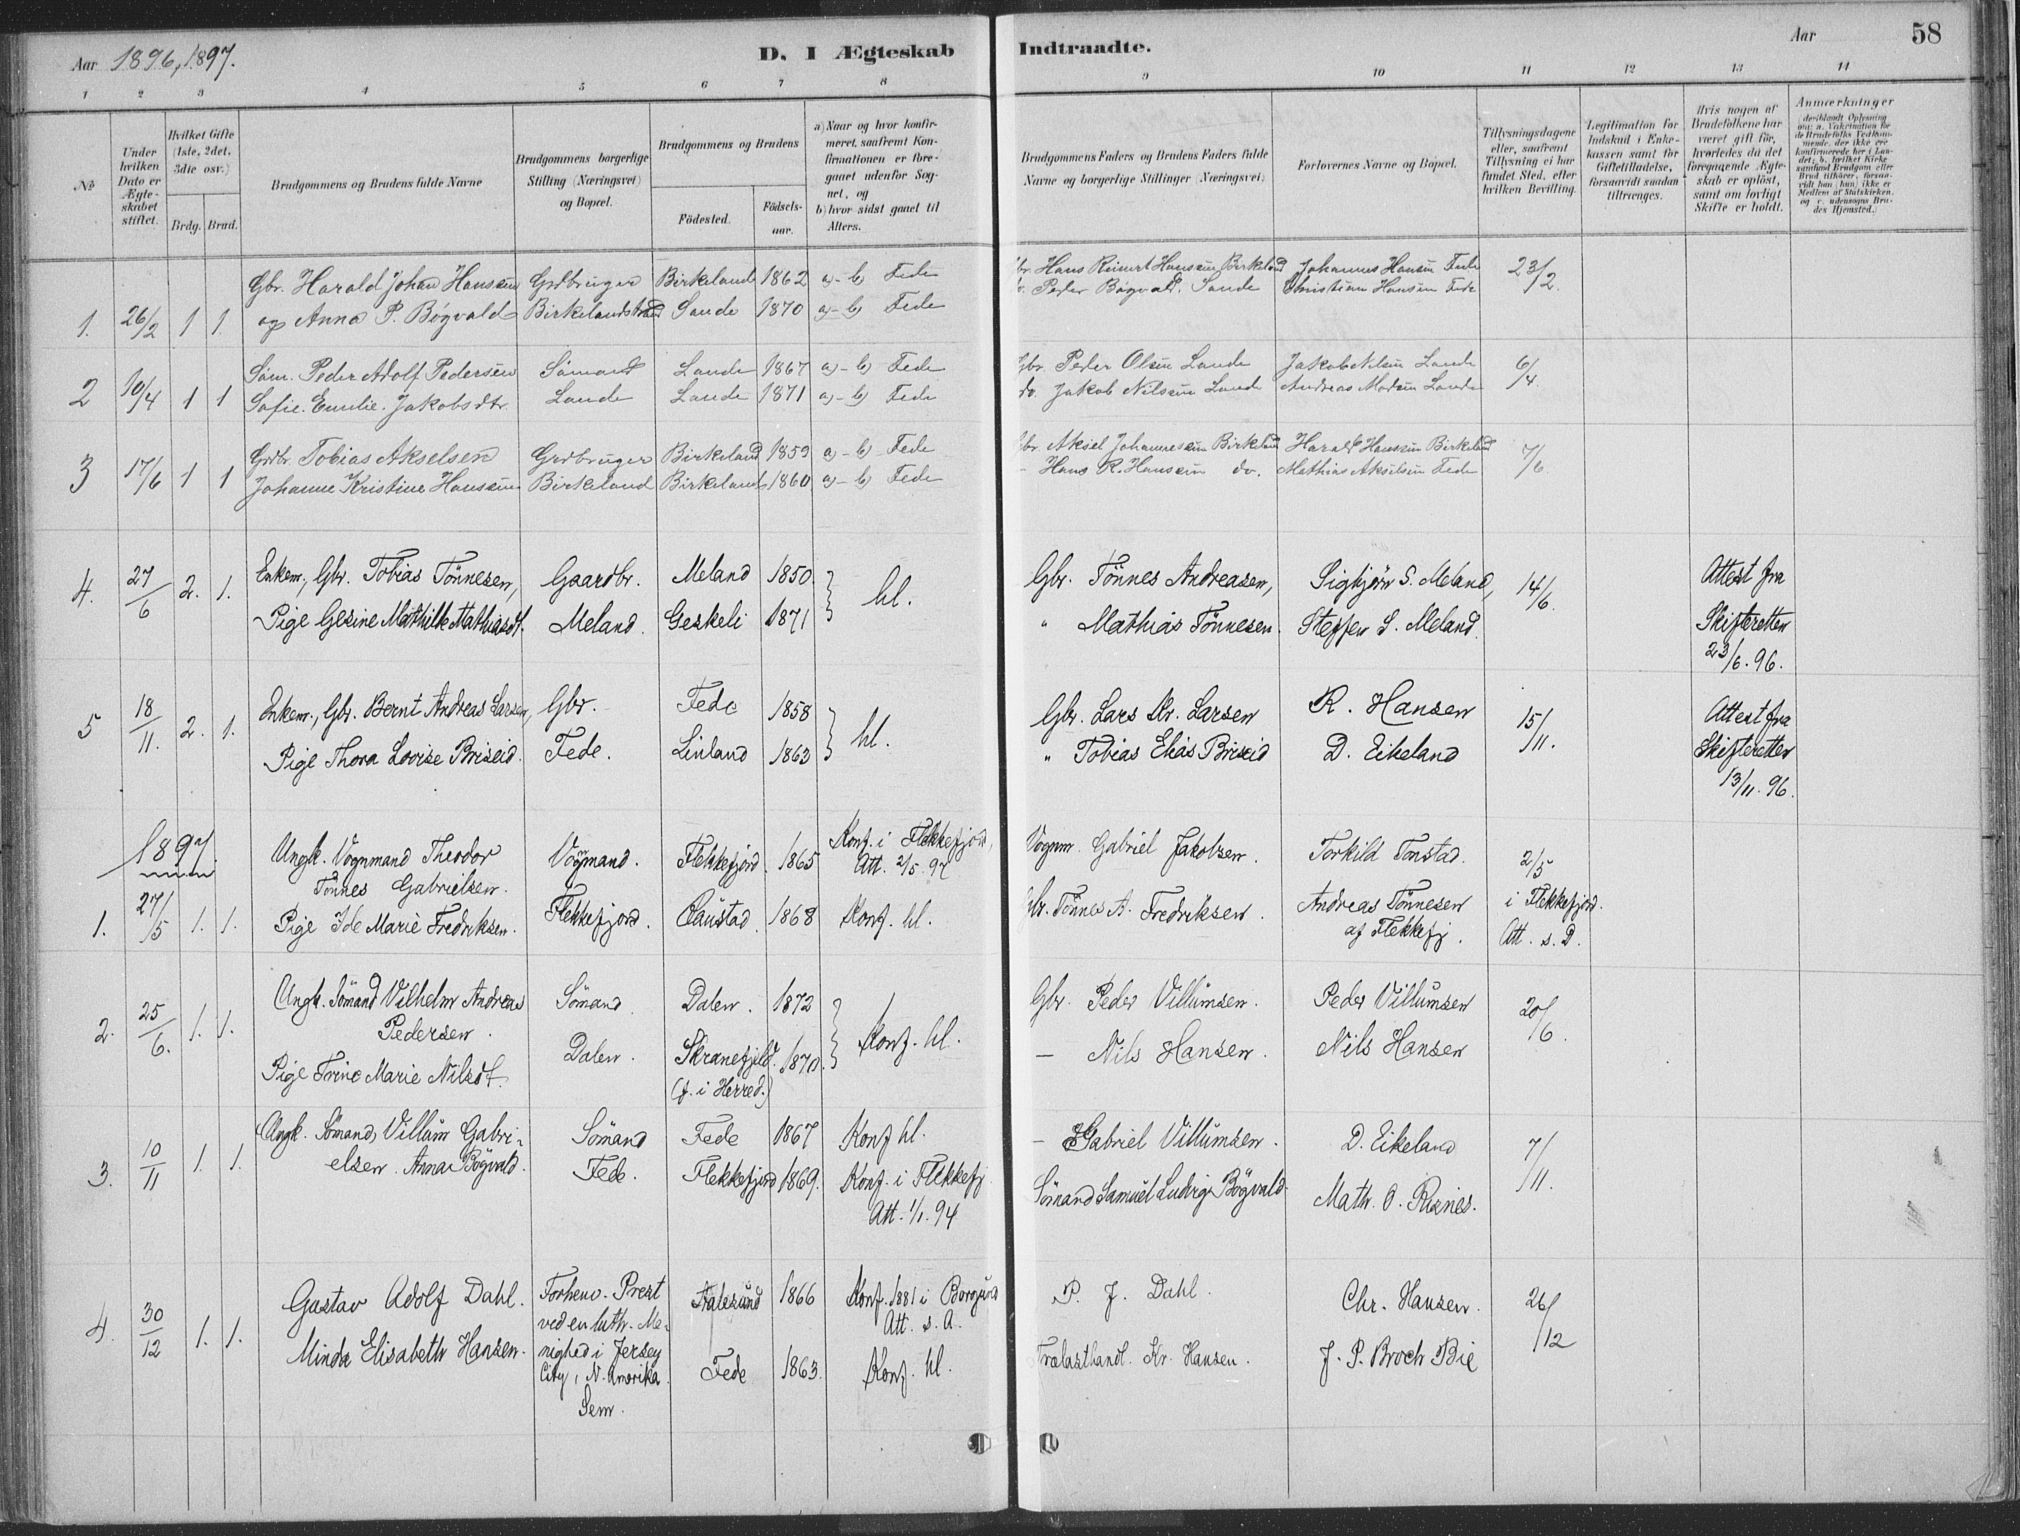 Aar 1896, 1897.
D. I Ægteskab Indtraadte.
Aar
58
1 2 3 4 5 6 7 8 9 10 11 12 13 14
No
Under hvilken Dato er Ægteskabet stiftet.
Hvilket Gifte (1ste, 2det, 3die osv.)
Brdg. Brud.
Brudgommens og Brudens fulde Navne
Brudgommens borgerlige Stilling (Næringsvei) og Bopæl.
Brudgommens og Brudens
Födested.
Födsels-aar.
a) Naar og hvor konfir-
meret, saafremt Kon-
firmationen er fore-
gaaet udenfor Sog-
net, og
b) hvor sidst gaaet til
Alters.
Brudgommens Faders og Brudens Faders fulde
Navne og borgerlige Stillinger (Næringsvei)
Forlovernes Navne og Bopæl.
Tillysningsdagene
eller, saafremt
Tillysning ei har
fundet Sted, efter
hvilken Bevilling.
Legitimation for
Indskud i Enke-
kassen samt for
Giftetilladelse,
forsaavidt saadan
tiltrænges.
Hvis nogen af
Brudefolkene har
været gift för,
hvorledes da det
foregaaende Ægte-
skab er oplöst,
samt om lovligt
Skifte er holdt.
Anmærkninger
(deriblandt Oplysning
om: a. Vakcination for
de Brudefolks Vedkom-
mende, der ikke ere
konfirmerede her i Lan-
det; b. hvilket Kirke-
samfund Brudgom eller
Brud tilhörer, forsaa-
vidt han (hun) ikke er
Medlem af Statskirken,
og c. udensogns Bru-
des Hjemsted.)
Gbr. Harald Johan Hansen Grdbruger Birkeland 1862 a)-b) Fede
Hans Reinert Hansen Birkeland Johannes Hansen Fede 23/2.
1. 26/2 1 1. og Anna P. Bøgvald Birkelandstrand Sande 1870 a)-b) Fede
Peder Bøgvald. Sande Christian Hansen Fede
Søm. Peder Adolf Pedersen Sömand Lande 1867 a)-b) Fede
Gbr. Peder Olsen Lande Jakob Nilsen Lande 6/4.
2 10/4 1 1 Sofie. Emilie. Jakobsdtr. Lande Lande 1871 a)-b) Fede
do. Jakob Nilsen Lande Andreas Madsen Lande
Grdbr. Tobias Akselsen Grdbruger Birkeland 1859 a)-b) Fede
Gbr. Aksel Johannessen Birkeland Harald Hansen Birkeland 7/6.
3 17/6 1 1 Johanne Kristine Hansen Birkeland Birkeland 1860 a)-b) Fede
- Hans R. Hansen do. Mathias Akselsen Fede
4. 27/6 2. 1. Enkem., Gbr. Tobias Tönnesen, Gaardbr. Meland 1850. hl.
Gbr. Tönnes Andreasen, Sigbjørn S. Meland, 14/6. Attest fra
Pige Gesine Mathilde Mathiasdt. Meland. Geskeli 1871
" Mathias Tönnesen. Steffen S. Meland. Skifteretten
23/6. 96.
5 18/11. 2. 1. Enkem., Gbr. Bernt Andreas Larsen, Gbr. Fede 1858 hl.
Gbr. Lars Kr. Larsen R. Hansen 15/11. Attest fra
Pige Thora Lovise Briseid. Fede. Linland 1863
" Tobias Elias Briseid D. Eikeland Skifteretten
13/11. 96.
1897.
Ungk. Vognmand Theodor Vognmand. Flekkefjord. 1865 Konf. i Flekkefjord,
Tönnes Gabrielsen. Att. 2/5. 97
Vognm. Gabriel Jakobsen. Torkild Tonstad. 2/5
1. 27/5 1. 1. Pige Ide Marie Fredriksen. Flekkefjord. Paustad. 1868 Konf. hl.
Gbr. Tönnes A. Fredriksen. Andreas Tönnesen i Flekkefjord.
af Flekkefj. Att. s. D.
2. 25/6. 1. 1. Ungk. Sömand Vilhelm Andreas Sömand. Dalen. 1872 Konf. hl.
Pedersen.
Gbr. Peder Villumsen. Peder Villumsen 20/6.
Pige Trine Marie Nilsdt. Dalen. Skranefjeld. 1870.
(f. i Herred.)
- Nils Hansen. Nils Hansen
3. 10/11 1. 1. Ungk. Sömand, Villum Gabri- Sömand Fede 1867 Konf hl.
- Gabriel Villumsen. D. Eikeland 7/11.
elsen. Anna Bøgvald. Fede. Flekkefjord 1869. Konf. i Flekkefj
Att. 1/1. 94
Sömand Samuel Ludvig Bögvald. Math. O. Risnes.
4. 30/12 1. 1. Gustav Adolf Dahl. Forhenv. Prest Aalesund 1866 Konf. 1881 i Borgund
ved en luth. Me- Att. s. A.
P. J. Dahl. Chr. Hansen. 26/12
Minda Elisabeth Hansen. nighed i Jersey Fede 1863. Konf. hl.
City, N. Amerika.
Sem.
Trælasthandl. Kr. Hansen. J. P. Broch Bie